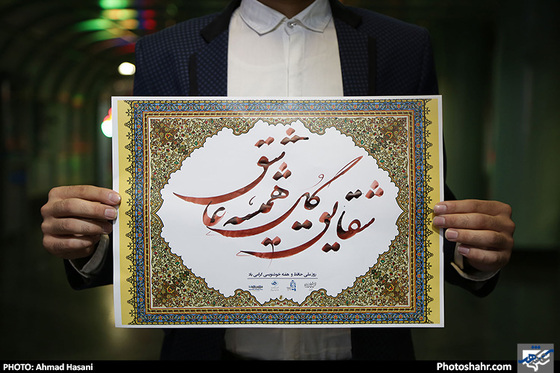 شقایق گلی همیشه عاشق
روز ملی حافظ و هفته خوشنویسی گرامی باد
PHOTO: Ahmad Hasani
Photoshahr.com